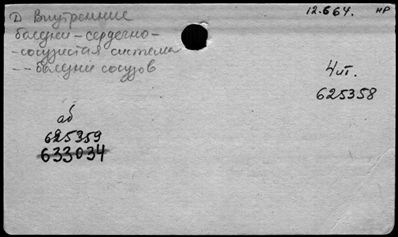 12.664. нр
D Внутренние
болезни - сердечно-
-сосудистая система
-- болезни сосудов
4 ит.
625358
аб
625359
633034